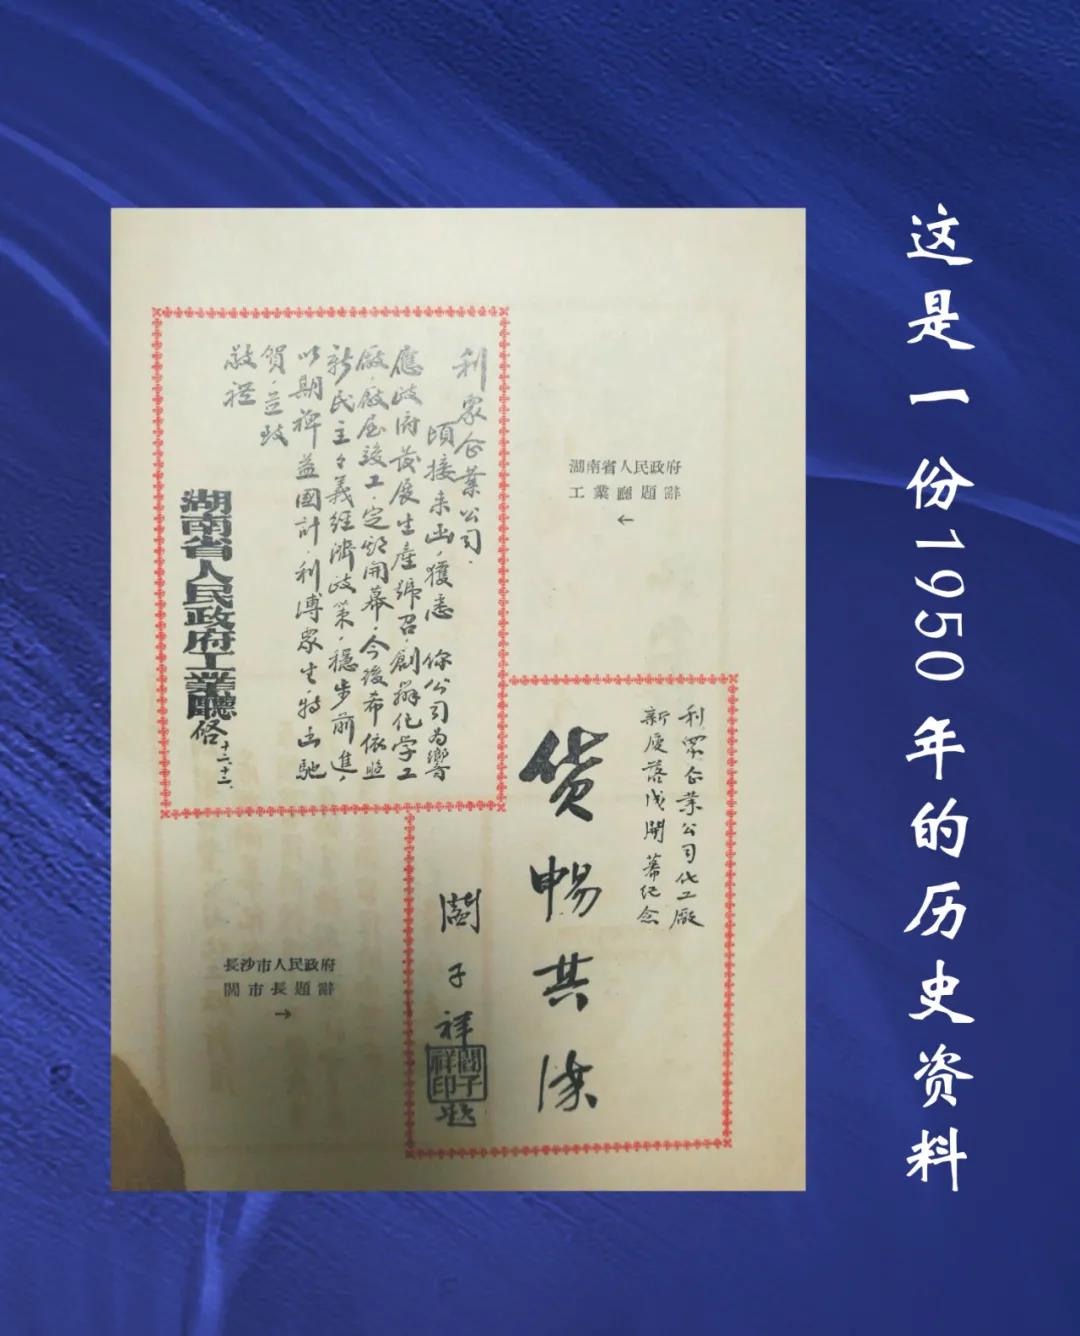 这是一份1950年的历史资料
湖南省人民政府
工業廳題辭
←
利眾企業公司.
頃接来函,獲悉 你公司为響
應政府发展生產號召,創辦化学工
廠,廠屋竣工,定期開幕,今後希依照
新民主々義经濟政策,穩步前進,
以期裨益國計,利溥眾生,特函馳
賀,並致
敬禮
湖南省人民政府工業廳啓 十二.十二.
利眾企業公司化工廠
新廈落成開幕纪念
货暢其流
閻子祥
閻子祥印
題
長沙市人民政府
閻市長題辭
→